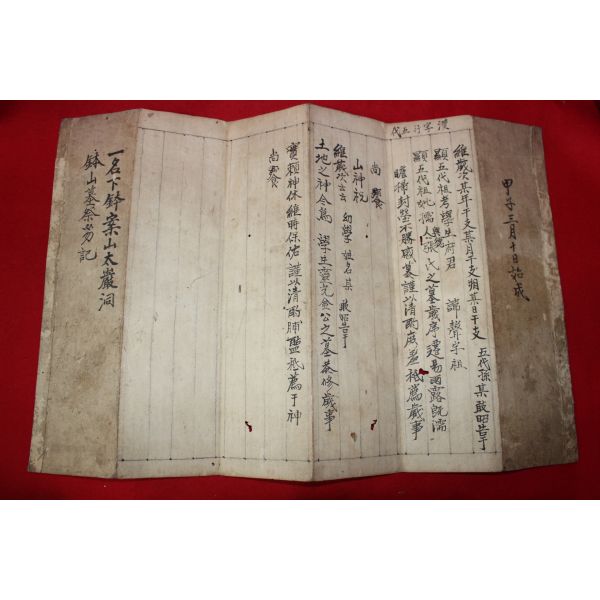 甲子三月十日始成
漢字行五代
維歲次某年干支某月干支朔某日干支 五代孫某敢昭告于
顯五代祖考學生府君 諱聲字祖
顯五代祖妣孺人張氏之墓歲序遷易雨露旣濡
瞻掃封塋不勝感慕謹以清酌庶羞祗薦歲事
尚饗
山神祝
維歲次云云 幼學姓名某敢昭告于
土地之神今爲 學生 公之墓恭修歲事
實賴神休維時保佑謹以清酌脯醢祗薦于神
尚饗
一名下鉢案山太巖洞
鉢山墓祭笏記